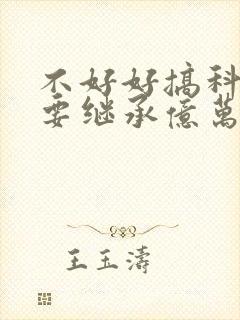 不好好搞科
要继承億萬
王玉濤